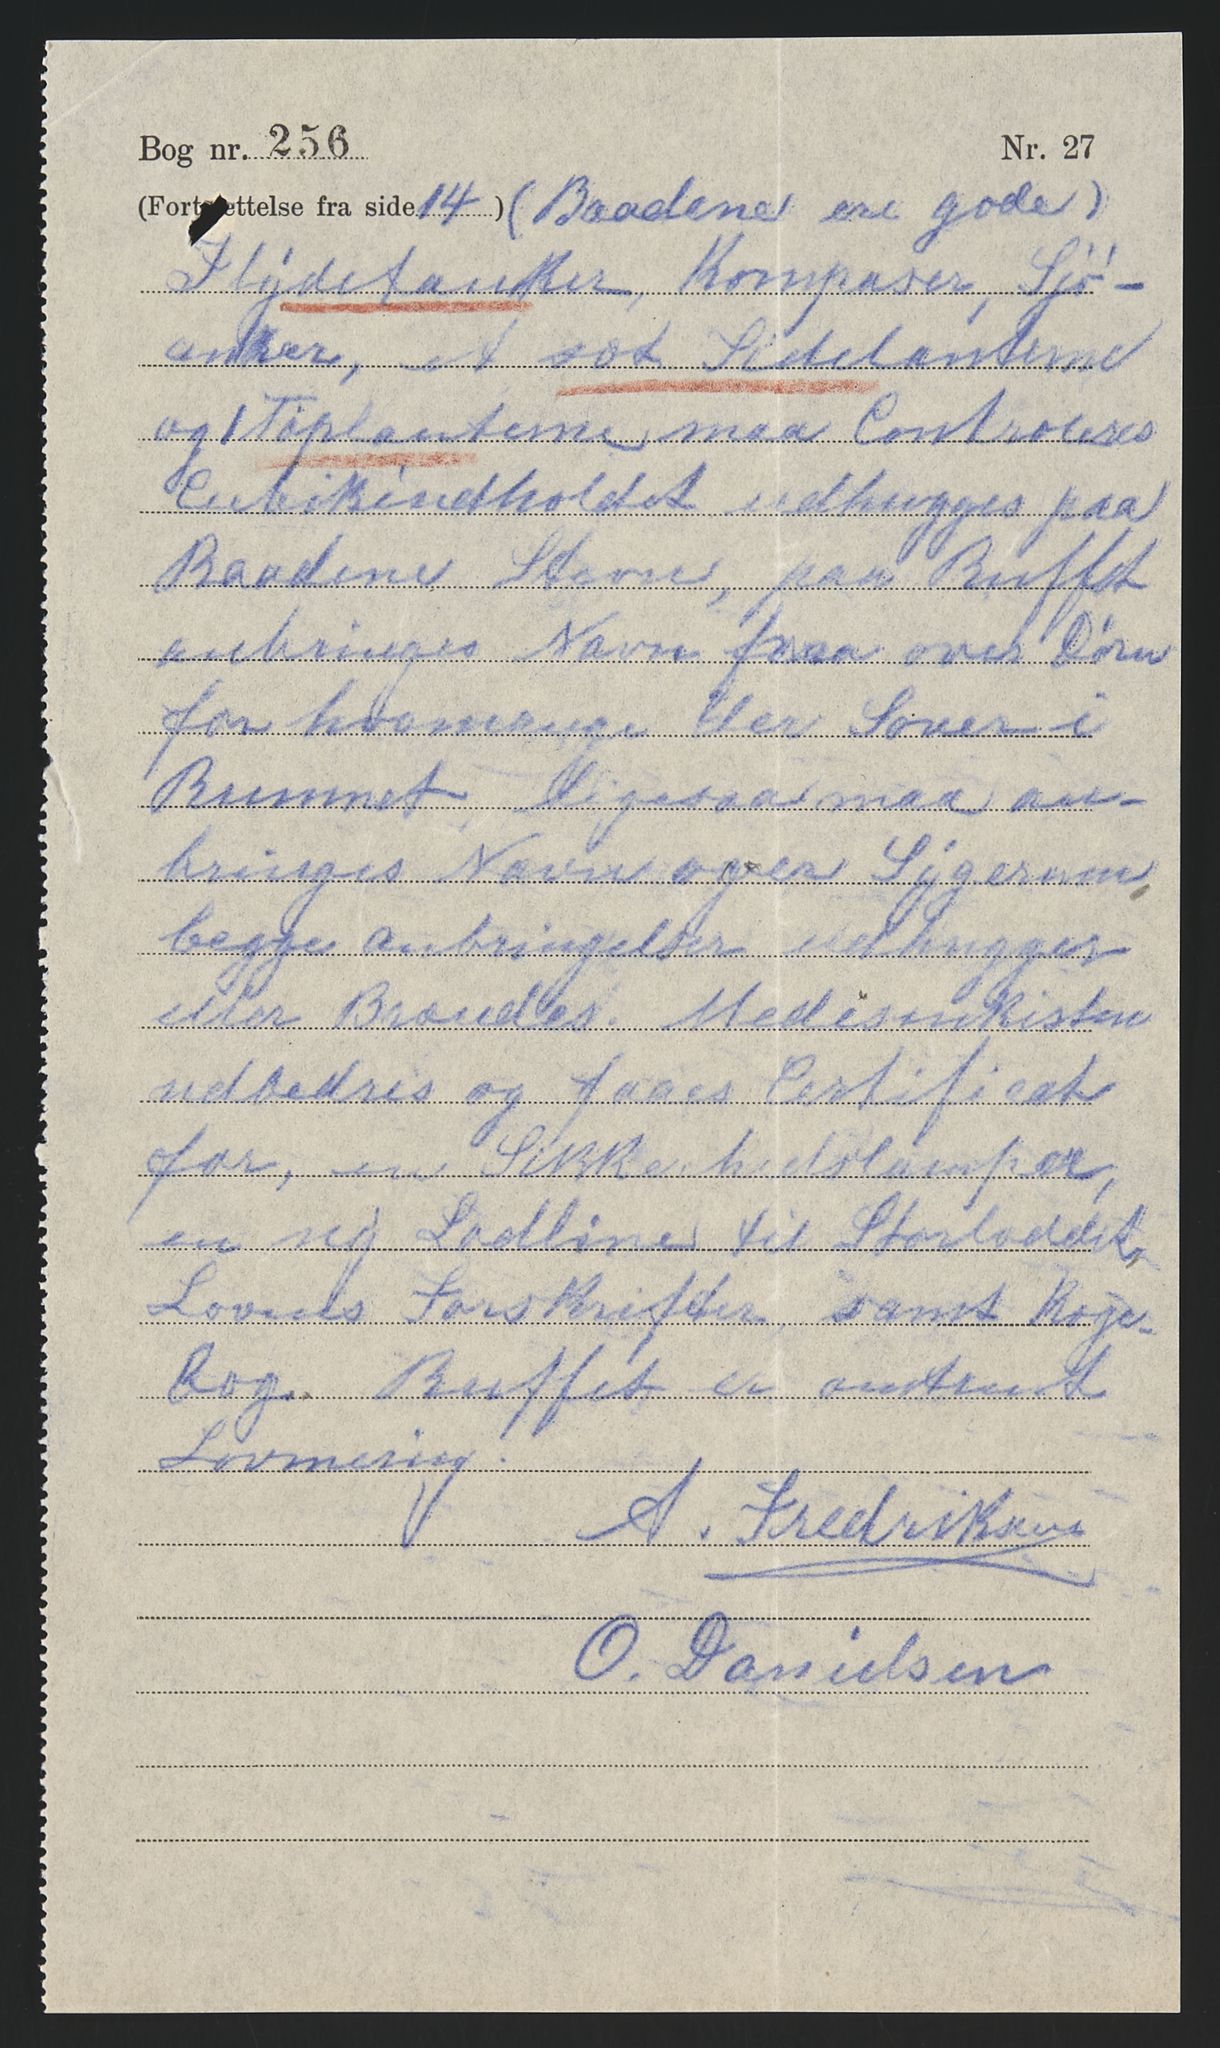 Bog nr. 256 Nr. 27
(Fortsættelse fra side 14 ) (Baadene ere gode)
Flydetanker, Kompaser, Sjö-
anker, et rot Sidelanterne
og 1 Toplanterne maa Controleres
Cubikindholdet udhugges paa
Baadene Stavn, paa Ruffet
anbringes Navn paa over Dörn
for hvormange der Sover i
Rummet, ligesaa maa an-
bringes Navn over Sygerum
begge anbringelser udhugges
eller Brændes. Medisinkisten
udbedres og faaes Certificat
for, en Sikkerhedslamper,
en ny Lodline til Storloddet,
Lovens Forskrifter, samt Koge-
bog. Ruffet er omtrent
Lovmesig.
A. Fredriksen
O. Danielsen